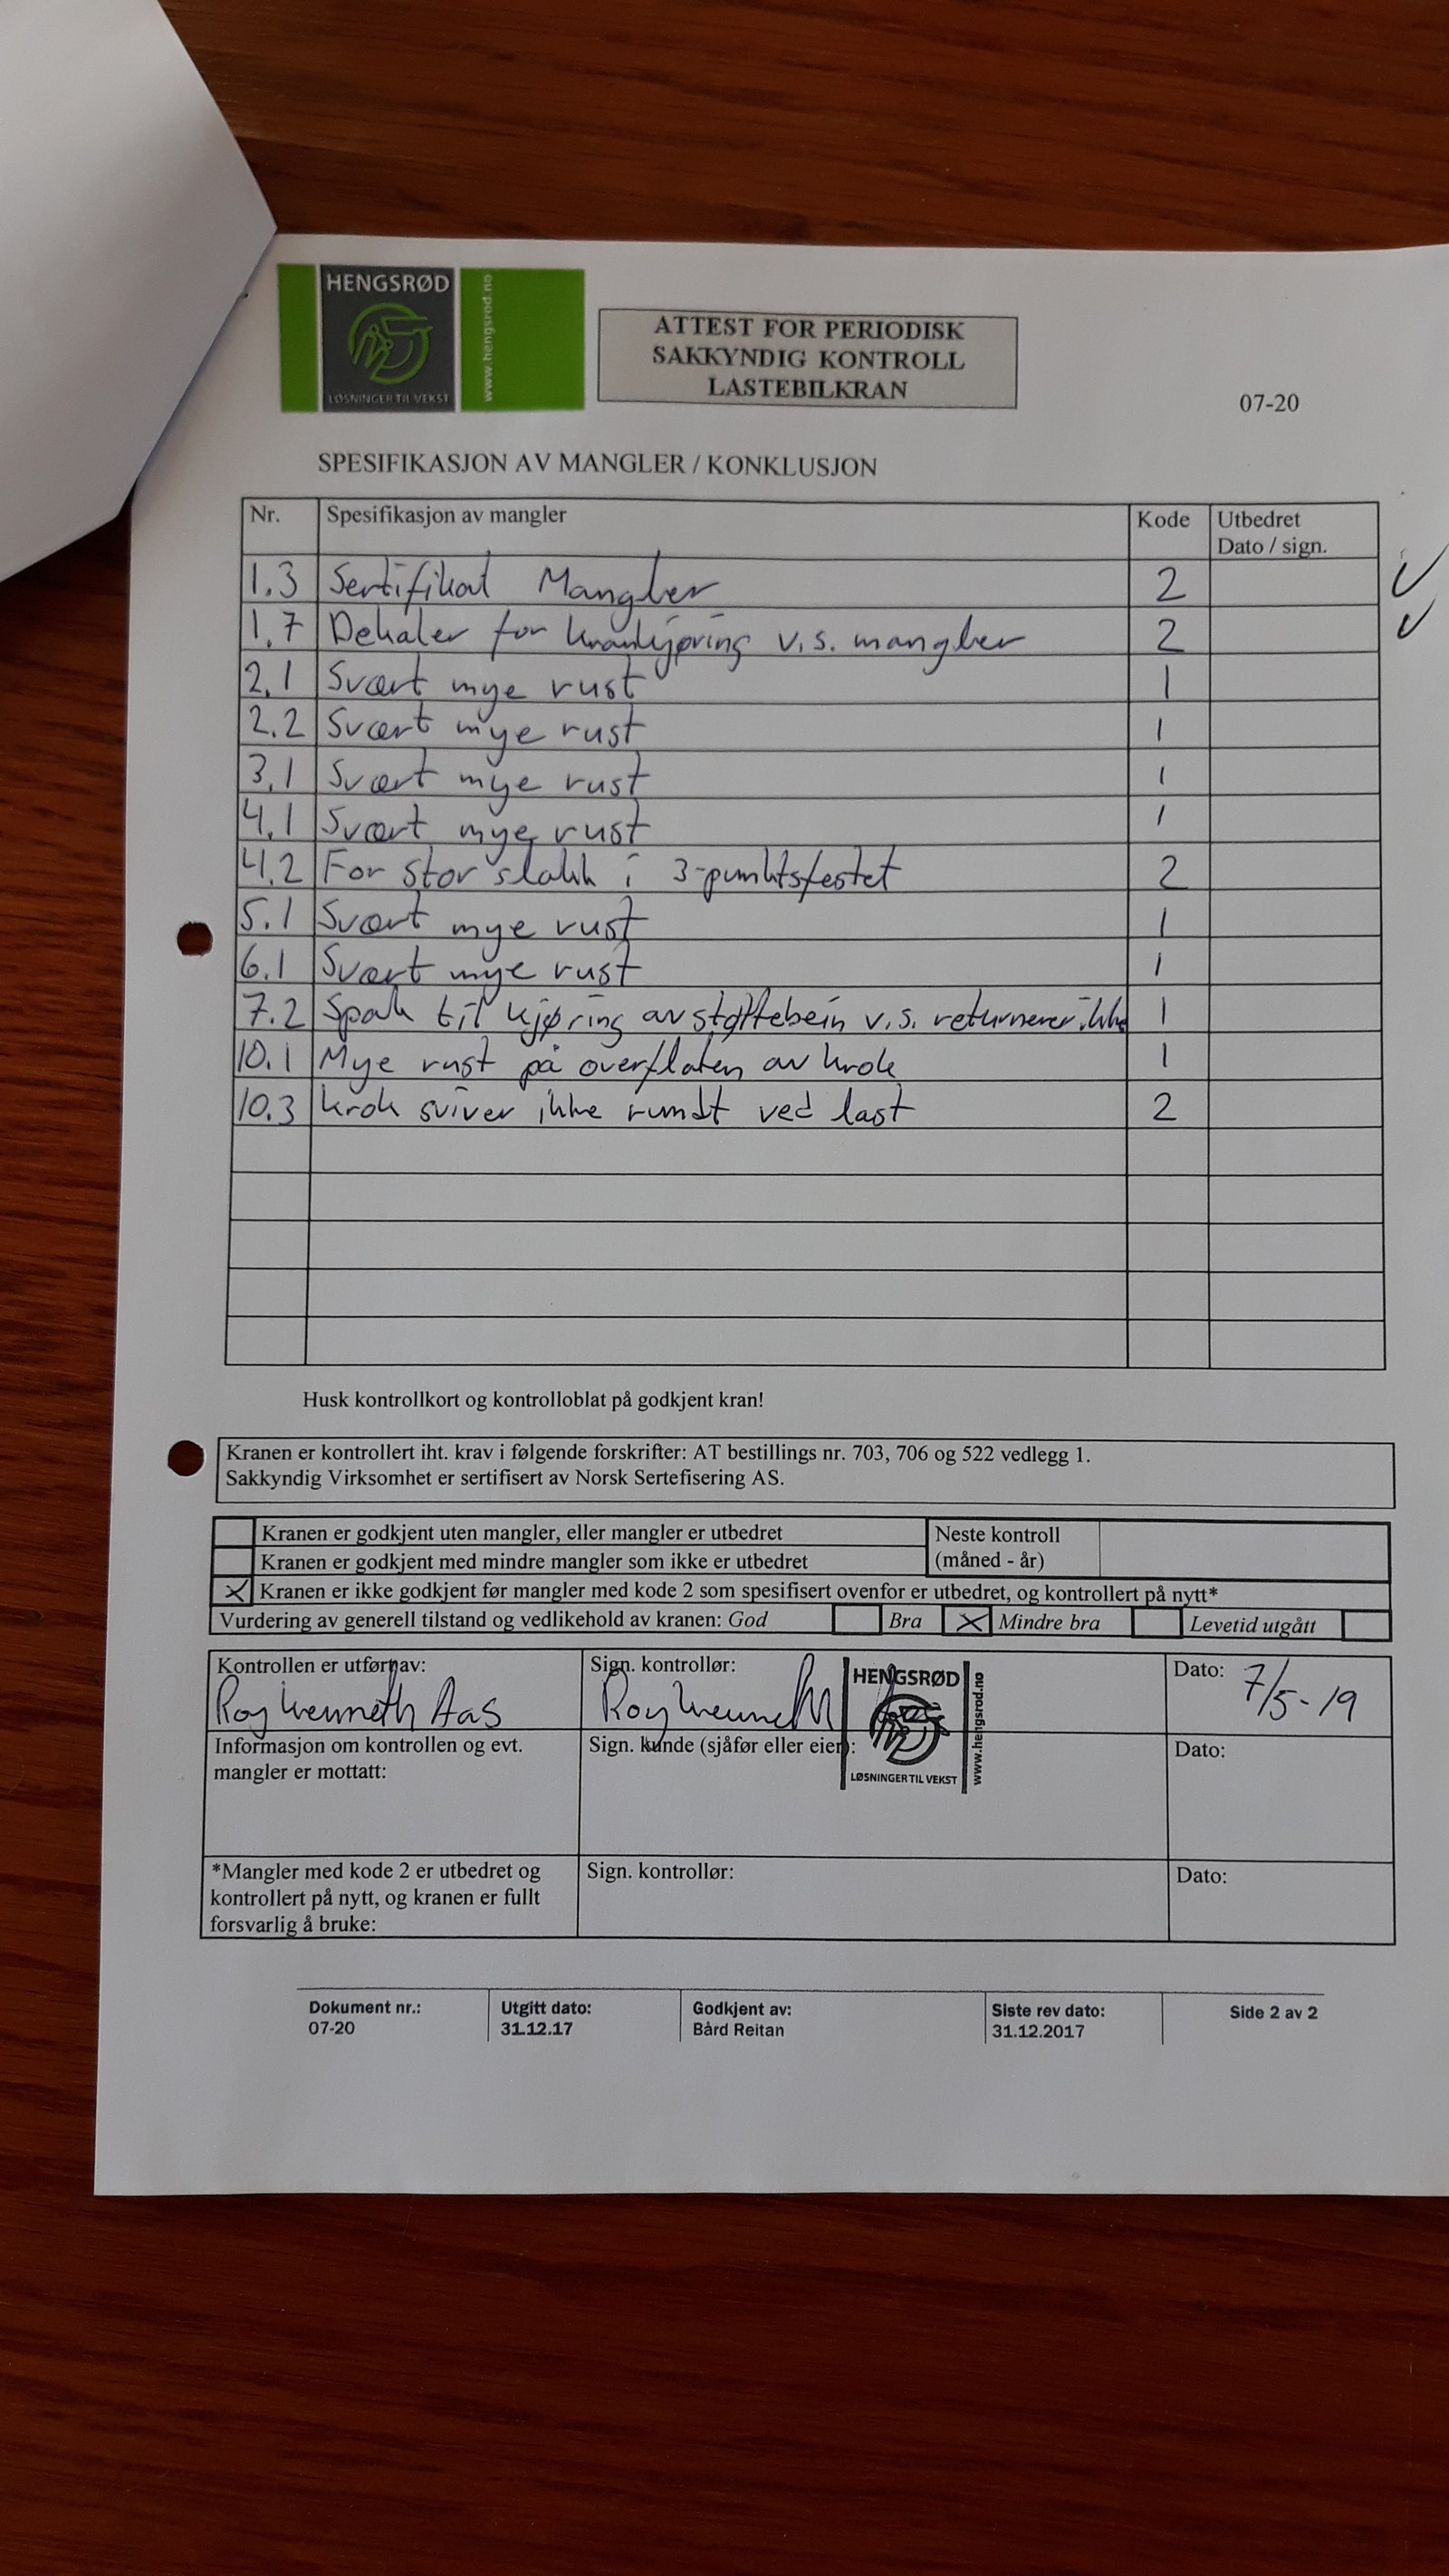 HENGSRØD
www.hengsrod.no
LØSNINGER TIL VEKST
ATTEST FOR PERIODISK
SAKKYNDIG KONTROLL
LASTEBILKRAN
07-20
SPESIFIKASJON AV MANGLER / KONKLUSJON
Nr. Spesifikasjon av mangler Kode Utbedret
Dato / sign.
1.3 Sertifikat Mangler 2
1.7 Dekaler for krankjøring v.s. mangler 2
2.1 Svært mye rust 1
2.2 Svært mye rust 1
3.1 Svært mye rust 1
4.1 Svært mye rust 1
4.2 For stor slakk i 3-punktsfestet 2
5.1 Svært mye rust 1
6.1 Svært mye rust 1
7.2 Spak til kjøring av støttebein v.s. returnerer ikke 1
10.1 Mye rust på overflaten av krok 1
10.3 Krok sviver ikke rundt ved last 2
Husk kontrollkort og kontrolloblat på godkjent kran!
Kranen er kontrollert iht. krav i følgende forskrifter: AT bestillings nr. 703, 706 og 522 vedlegg 1.
Sakkyndig Virksomhet er sertifisert av Norsk Sertefisering AS.
Kranen er godkjent uten mangler, eller mangler er utbedret Neste kontroll
Kranen er godkjent med mindre mangler som ikke er utbedret (måned - år)
X Kranen er ikke godkjent før mangler med kode 2 som spesifisert ovenfor er utbedret, og kontrollert på nytt*
Vurdering av generell tilstand og vedlikehold av kranen: God Bra X Mindre bra Levetid utgått
Kontrollen er utført av: Sign. kontrollør: Dato: 7/5-19
Roy Kenneth Aas Roy Kenneth
HENGSRØD
www.hengsrod.no
LØSNINGER TIL VEKST
Informasjon om kontrollen og evt. Sign. kunde (sjåfør eller eier): Dato:
mangler er mottatt:
*Mangler med kode 2 er utbedret og Sign. kontrollør: Dato:
kontrollert på nytt, og kranen er fullt
forsvarlig å bruke:
Dokument nr.: Utgitt dato: Godkjent av: Siste rev dato: Side 2 av 2
07-20 31.12.17 Bård Reitan 31.12.2017